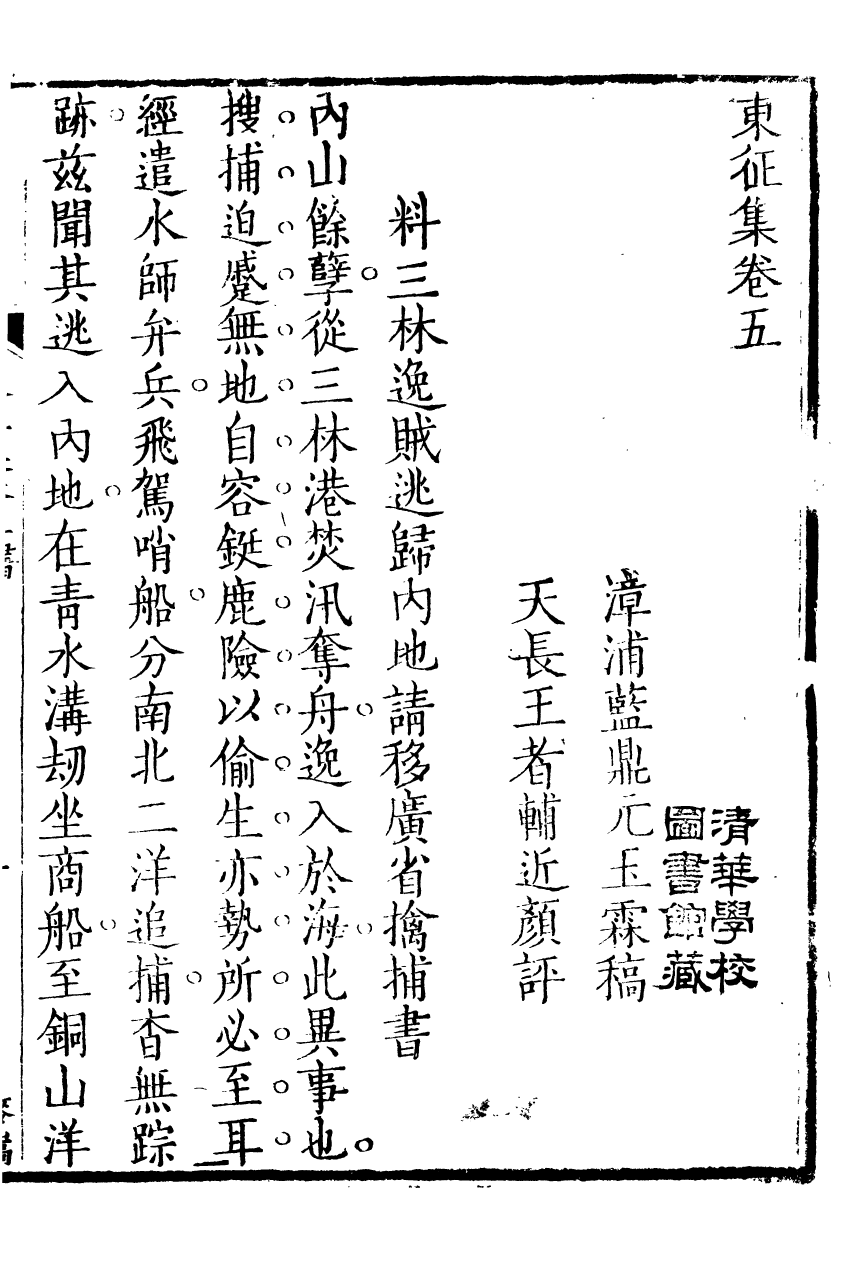 東征集卷五
清華學校
圖書館藏
漳浦藍鼎元玉霖稿
天長王者輔近顏評
料三林逸賊逃歸內地請移廣省擒捕書
內山餘孽從三林港焚汛奪舟逸入於海此異事也
搜捕迫蹙無地自容鋌鹿險以偷生亦勢所必至耳
經遣水師弁兵飛駕哨船分南北二洋追捕杳無踪
跡兹聞其逃入內地在青水溝刼坐商船至銅山洋